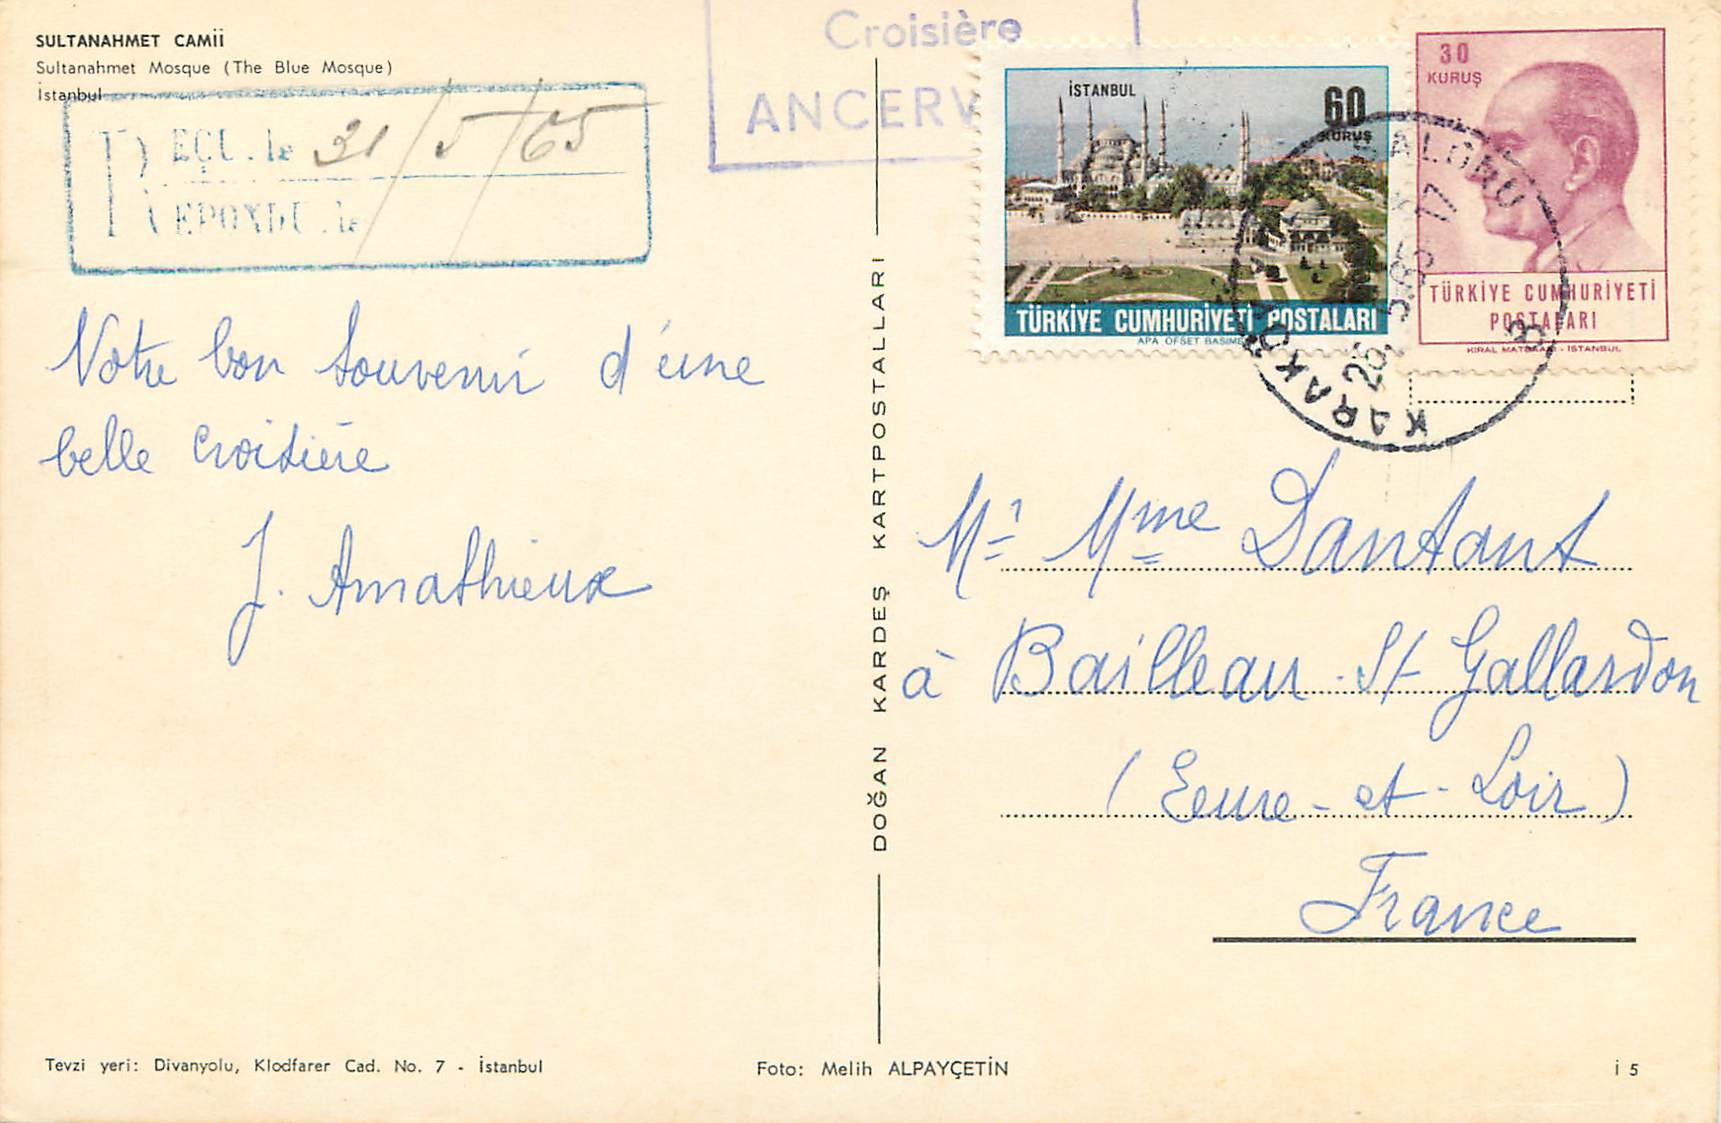 SULTANAHMET CAMİİ
Sultanahmet Mosque (The Blue Mosque)
İstanbul
REÇU. le 31/5/65
REPONDU. le
Croisière
ANCERV
Notre bon souvenir d'une
belle croisière
J. Amathieux
DOĞAN KARDEŞ KARTPOSTALLARI
İSTANBUL
60
KURUŞ
TÜRKİYE CUMHURİYETİ POSTALARI
APA OFSET BASIME
30
KURUŞ
TÜRKİYE CUMHURİYETİ
POSTALARI
KIRAL MATBAASI - İSTANBUL
KARAKÖY
Mr Mme Dantant
à Bailleau-St Gallardon
(Eure-et-Loir)
France
Tevzi yeri: Divanyolu, Klodfarer Cad. No. 7 - İstanbul
Foto: Melih ALPAYÇETİN
İ 5